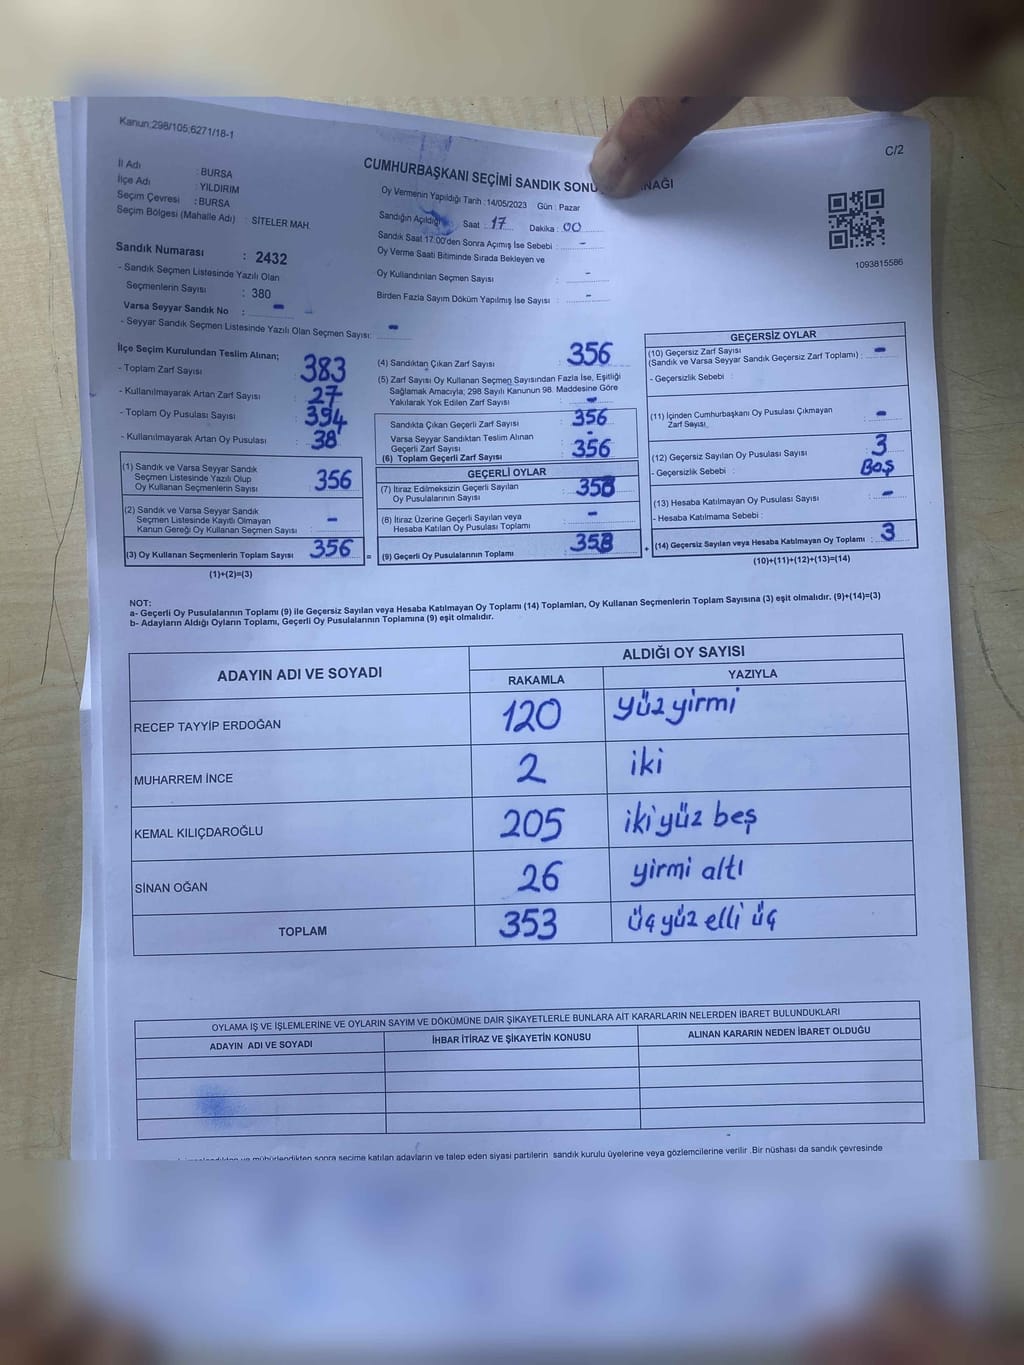 Kanun;298/105;6271/18-1
C/2
İl Adı : BURSA
İlçe Adı : YILDIRIM
Seçim Çevresi : BURSA
Seçim Bölgesi (Mahalle Adı) : SİTELER MAH.
Sandık Numarası : 2432
- Sandık Seçmen Listesinde Yazılı Olan
Seçmenlerin Sayısı : 380
Varsa Seyyar Sandık No : -
- Seyyar Sandık Seçmen Listesinde Yazılı Olan Seçmen Sayısı: -
CUMHURBAŞKANI SEÇİMİ SANDIK
Oy Vermenin Yapıldığı Tarih : 14/05/2023 Gün : Pazar
Sandığın Açıldığı Saat : 17 Dakika : 00
Sandık Saat 17:00'den Sonra Açımış İse Sebebi : -
Oy Verme Saati Bitiminde Sırada Bekleyen ve
Oy Kullandırılan Seçmen Sayısı : -
Birden Fazla Sayım Döküm Yapılmış İse Sayısı : -
1093815586
İlçe Seçim Kurulundan Teslim Alınan;
- Toplam Zarf Sayısı : 383
- Kullanılmayarak Artan Zarf Sayısı : 27
- Toplam Oy Pusulası Sayısı : 394
- Kullanılmayarak Artan Oy Pusulası : 38
(1) Sandık ve Varsa Seyyar Sandık
Seçmen Listesinde Yazılı Olup
Oy Kullanan Seçmenlerin Sayısı : 356
(2) Sandık ve Varsa Seyyar Sandık
Seçmen Listesinde Kayıtlı Olmayan
Kanun Gereği Oy Kullanan Seçmen Sayısı : -
(3) Oy Kullanan Seçmenlerin Toplam Sayısı : 356
(1)+(2)=(3)
(4) Sandıktan Çıkan Zarf Sayısı : 356
(5) Zarf Sayısı Oy Kullanan Seçmen Sayısından Fazla İse, Eşitliği
Sağlamak Amacıyla; 298 Sayılı Kanunun 98. Maddesine Göre
Yakılarak Yok Edilen Zarf Sayısı : -
Sandıkta Çıkan Geçerli Zarf Sayısı : 356
Varsa Seyyar Sandıktan Teslim Alınan
Geçerli Zarf Sayısı : -
(6) Toplam Geçerli Zarf Sayısı : 356
GEÇERLİ OYLAR
(7) İtiraz Edilmeksizin Geçerli Sayılan
Oy Pusulalarının Sayısı : 353
(8) İtiraz Üzerine Geçerli Sayılan veya
Hesaba Katılan Oy Pusulası Toplamı : -
= (9) Geçerli Oy Pusulalarının Toplamı : 353
GEÇERSİZ OYLAR
(10) Geçersiz Zarf Sayısı
(Sandık ve Varsa Seyyar Sandık Geçersiz Zarf Toplamı) : -
- Geçersizlik Sebebi :
(11) İçinden Cumhurbaşkanı Oy Pusulası Çıkmayan
Zarf Sayısı : -
(12) Geçersiz Sayılan Oy Pusulası Sayısı : 3
- Geçersizlik Sebebi : Boş
(13) Hesaba Katılmayan Oy Pusulası Sayısı : -
- Hesaba Katılmama Sebebi :
+ (14) Geçersiz Sayılan veya Hesaba Katılmayan Oy Toplamı : 3
(10)+(11)+(12)+(13)=(14)
NOT:
a- Geçerli Oy Pusulalarının Toplamı (9) ile Geçersiz Sayılan veya Hesaba Katılmayan Oy Toplamı (14) Toplamları, Oy Kullanan Seçmenlerin Toplam Sayısına (3) eşit olmalıdır. (9)+(14)=(3)
b- Adayların Aldığı Oyların Toplamı, Geçerli Oy Pusulalarının Toplamına (9) eşit olmalıdır.
ADAYIN ADI VE SOYADI ALDIĞI OY SAYISI
RAKAMLA YAZIYLA
RECEP TAYYİP ERDOĞAN 120 yüz yirmi
MUHARREM İNCE 2 iki
KEMAL KILIÇDAROĞLU 205 iki yüz beş
SİNAN OĞAN 26 yirmi altı
TOPLAM 353 üç yüz elli üç
OYLAMA İŞ VE İŞLEMLERİNE VE OYLARIN SAYIM VE DÖKÜMÜNE DAİR ŞİKAYETLERLE BUNLARA AİT KARARLARIN NELERDEN İBARET BULUNDUKLARI
ADAYIN ADI VE SOYADI İHBAR İTİRAZ VE ŞİKAYETİN KONUSU ALINAN KARARIN NEDEN İBARET OLDUĞU
mühürlendikten sonra seçime katılan adayların ve talep eden siyasi partilerin sandık kurulu üyelerine veya gözlemcilerine verilir .Bir nüshası da sandık çevresinde